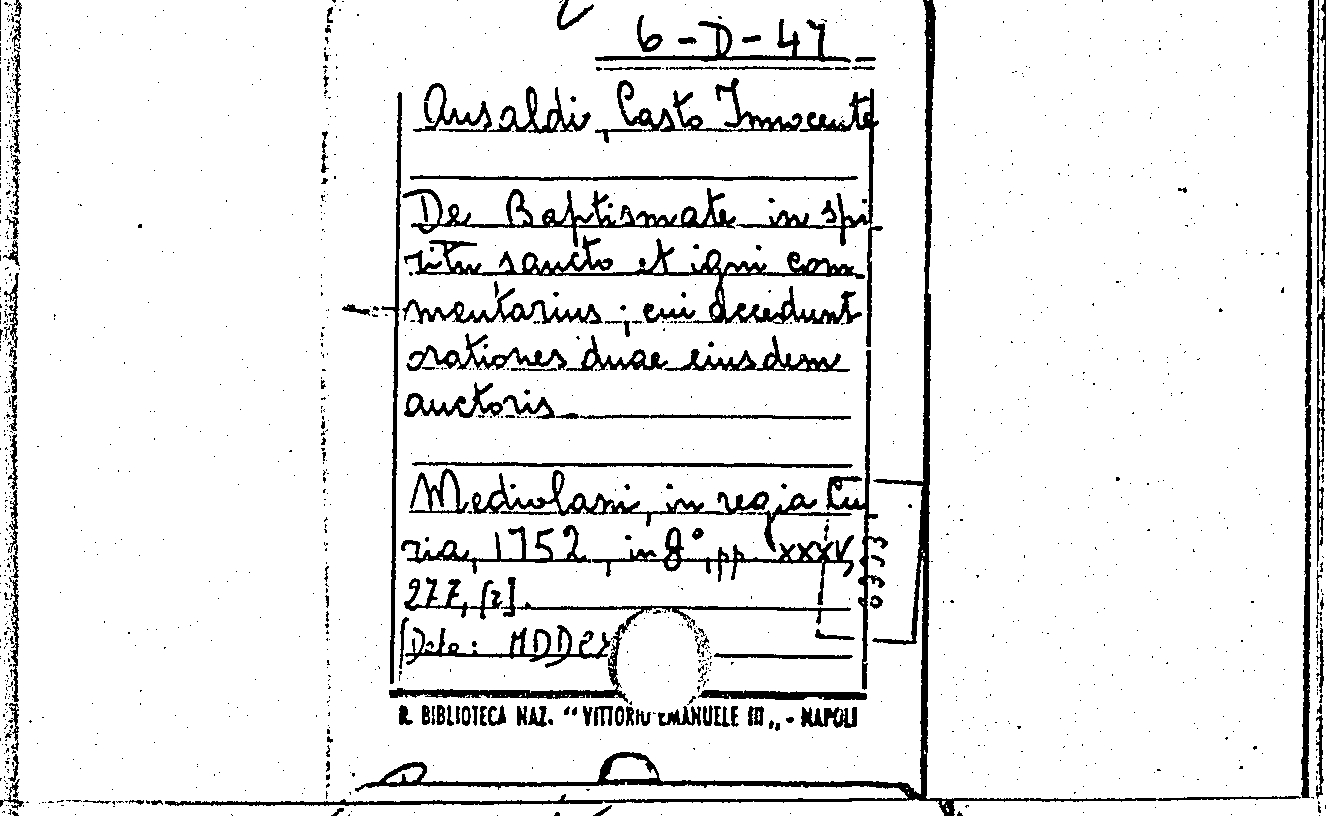 6-D-47
Ansaldi, Casto Innocente
De Baptismate in spi-
ritu sancto et igni com-
mentarius; cui accedunt
orationes duae eiusdem
auctoris.
Mediolani, in regia Cu-
ria, 1752, in 8°, pp. XXXV,
277, [2].
[Data: MDDC
R. BIBLIOTECA NAZ. “VITTORIO EMANUELE III„ - NAPOLI